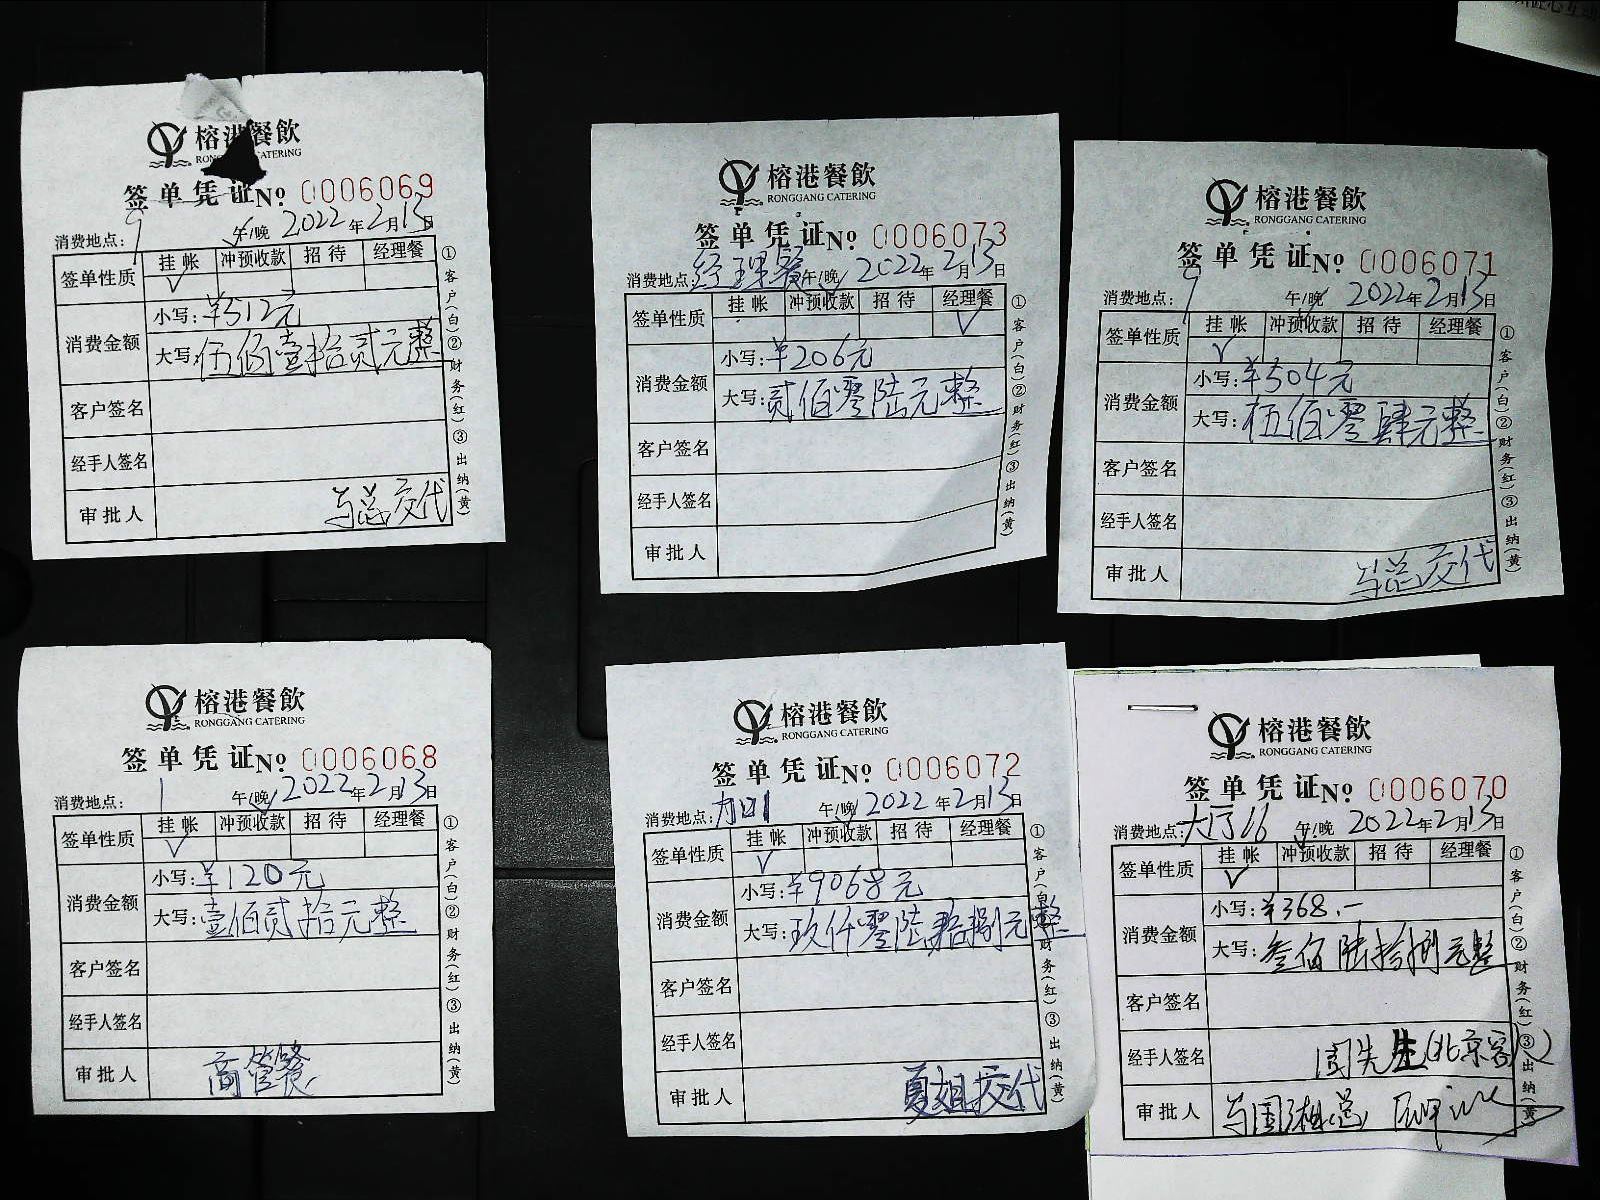 榕港餐飲
RONGGANG CATERING
签单凭证 No 0006069
消费地点：9 午/晚 2022年2月13日
签单性质 挂帐 冲预收款 招待 经理餐
√
消费金额 小写：¥512元
大写：伍佰壹拾贰元整
客户签名
经手人签名
审批人 与总交代
①客户(白)②财务(红)③出纳(黄)
榕港餐飲
RONGGANG CATERING
签单凭证 No 0006073
消费地点：经理餐 午/晚 2022年2月13日
签单性质 挂帐 冲预收款 招待 经理餐
√
消费金额 小写：¥206元
大写：贰佰零陆元整
客户签名
经手人签名
审批人
①客户(白)②财务(红)③出纳(黄)
榕港餐飲
RONGGANG CATERING
签单凭证 No 0006071
消费地点：9 午/晚 2022年2月13日
签单性质 挂帐 冲预收款 招待 经理餐
√
消费金额 小写：¥504元
大写：伍佰零肆元整
客户签名
经手人签名
审批人 与总交代
①客户(白)②财务(红)③出纳(黄)
榕港餐飲
RONGGANG CATERING
签单凭证 No 0006068
消费地点：1 午/晚 2022年2月13日
签单性质 挂帐 冲预收款 招待 经理餐
√
消费金额 小写：¥120元
大写：壹佰贰拾元整
客户签名
经手人签名
审批人 商管餐
①客户(白)②财务(红)③出纳(黄)
榕港餐飲
RONGGANG CATERING
签单凭证 No 0006072
消费地点： 午/晚 2022年2月13日
签单性质 挂帐 冲预收款 招待 经理餐
√
消费金额 小写：¥9068元
大写：玖仟零陆拾捌元整
客户签名
经手人签名
审批人 夏姐交代
①客户(白)②财务(红)③出纳(黄)
榕港餐飲
RONGGANG CATERING
签单凭证 No 0006070
消费地点：大厅16 午/晚 2022年2月13日
签单性质 挂帐 冲预收款 招待 经理餐
√
消费金额 小写：¥368.-
大写：叁佰陆拾捌元整
客户签名
经手人签名 周先生(北京客人)
审批人
①客户(白)②财务(红)③出纳(黄)